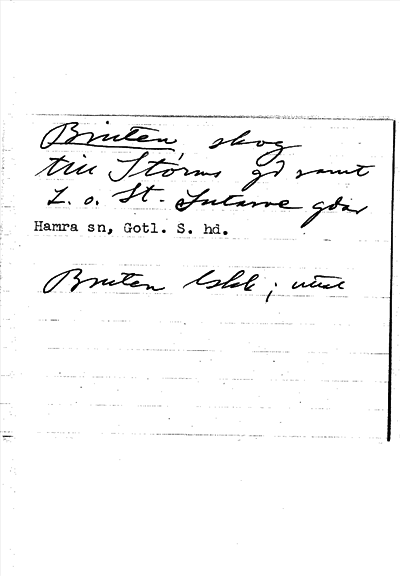 Bruten, skog
till Storms gd samt
L. o. St. Sutarve gdar
Hamra sn, Gotl. S. hd.
Bruten lskk;